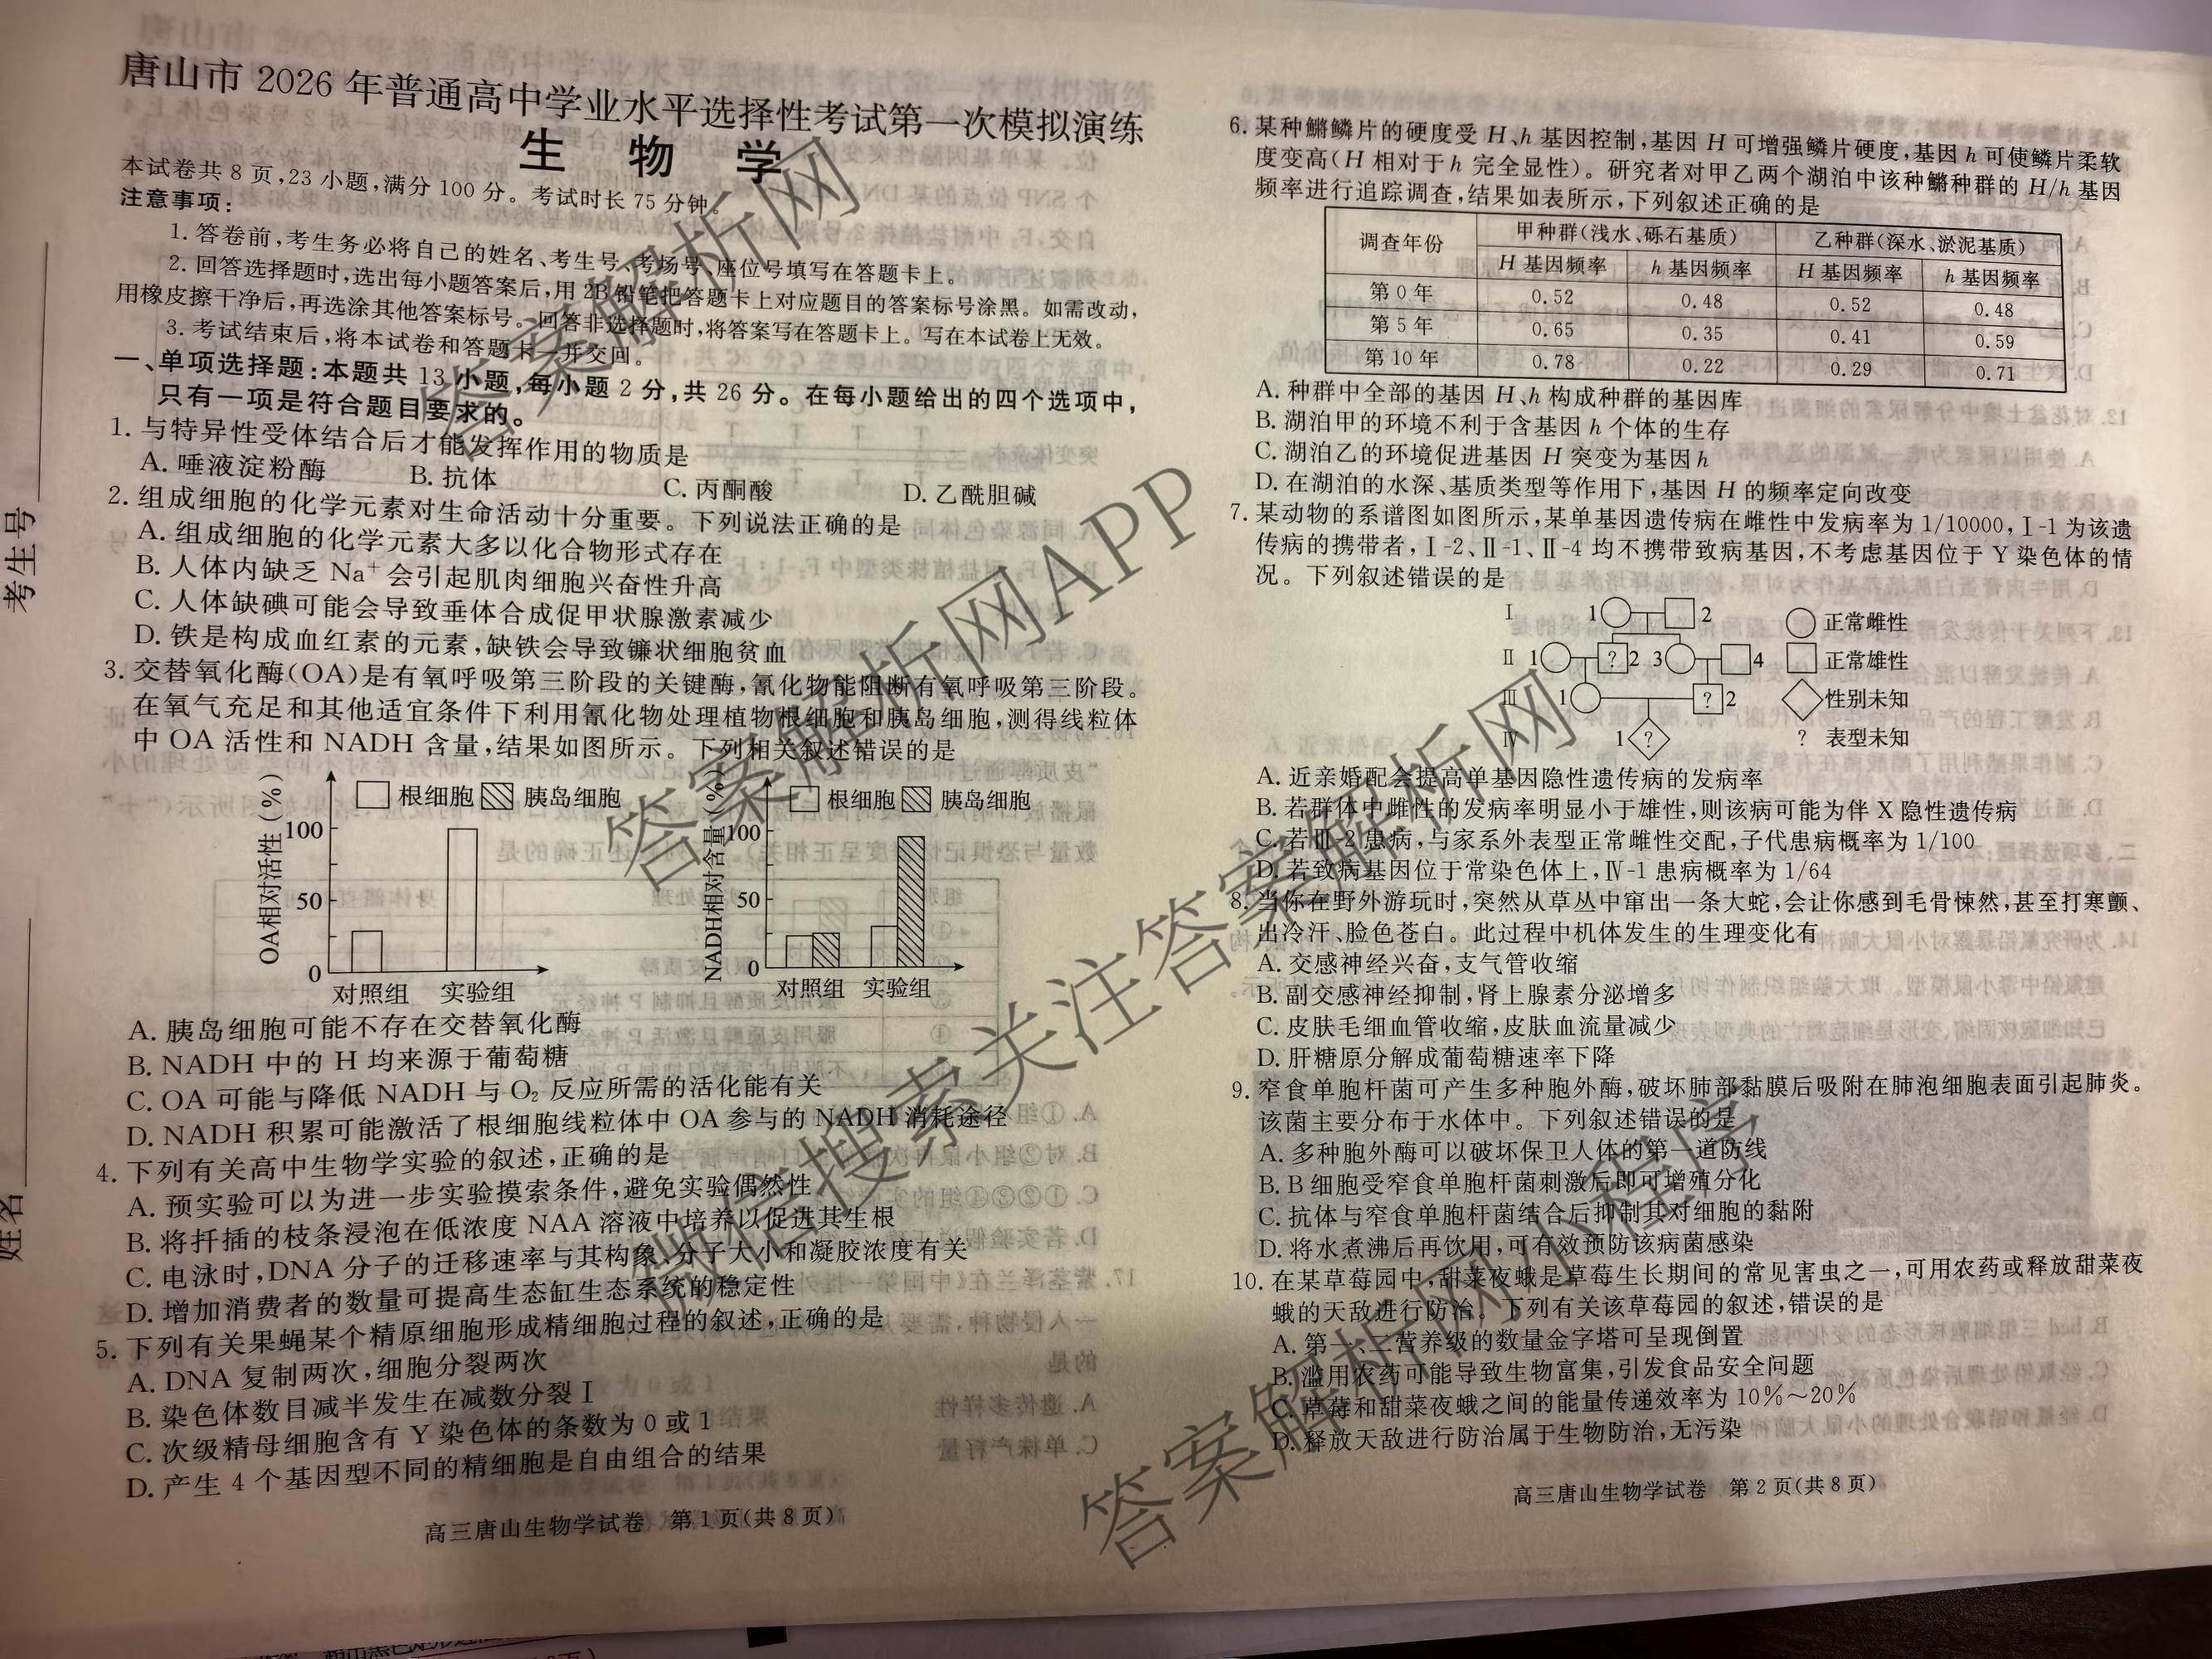 唐山市 2026 年普通高中学业水平选择性考试第一次模拟演练
生 物 学
本试卷共 8 页,23 小题,满分 100 分。考试时长 75 分钟。
注意事项:
1. 答卷前,考生务必将自己的姓名、考生号、考场号、座位号填写在答题卡上。
2. 回答选择题时,选出每小题答案后,用 2B 铅笔把答题卡上对应题目的答案标号涂黑。如需改动,
用橡皮擦干净后,再选涂其他答案标号。回答非选择题时,将答案写在答题卡上。写在本试卷上无效。
3. 考试结束后,将本试卷和答题卡一并交回。
一、单项选择题:本题共 13 小题,每小题 2 分,共 26 分。在每小题给出的四个选项中,
只有一项是符合题目要求的。
1. 与特异性受体结合后才能发挥作用的物质是
A. 唾液淀粉酶 B. 抗体 C. 丙酮酸 D. 乙酰胆碱
2. 组成细胞的化学元素对生命活动十分重要。下列说法正确的是
A. 组成细胞的化学元素大多以化合物形式存在
B. 人体内缺乏 Na⁺ 会引起肌肉细胞兴奋性升高
C. 人体缺碘可能会导致垂体合成促甲状腺激素减少
D. 铁是构成血红素的元素,缺铁会导致镰状细胞贫血
3. 交替氧化酶(OA)是有氧呼吸第三阶段的关键酶,氰化物能阻断有氧呼吸第三阶段。
在氧气充足和其他适宜条件下利用氰化物处理植物根细胞和胰岛细胞,测得线粒体
中 OA 活性和 NADH 含量,结果如图所示。下列相关叙述错误的是
OA相对活性(%)
根细胞 胰岛细胞
100
50
0
对照组 实验组
NADH相对含量(%)
根细胞 胰岛细胞
100
50
0
对照组 实验组
A. 胰岛细胞可能不存在交替氧化酶
B. NADH 中的 H 均来源于葡萄糖
C. OA 可能与降低 NADH 与 O₂ 反应所需的活化能有关
D. NADH 积累可能激活了根细胞线粒体中 OA 参与的 NADH 消耗途径
4. 下列有关高中生物学实验的叙述,正确的是
A. 预实验可以为进一步实验摸索条件,避免实验偶然性
B. 将扦插的枝条浸泡在低浓度 NAA 溶液中培养以促进其生根
C. 电泳时,DNA 分子的迁移速率与其构象、分子大小和凝胶浓度有关
D. 增加消费者的数量可提高生态缸生态系统的稳定性
5. 下列有关果蝇某个精原细胞形成精细胞过程的叙述,正确的是
A. DNA 复制两次,细胞分裂两次
B. 染色体数目减半发生在减数分裂 Ⅰ
C. 次级精母细胞含有 Y 染色体的条数为 0 或 1
D. 产生 4 个基因型不同的精细胞是自由组合的结果
高三唐山生物学试卷 第 1 页(共 8 页)
考生号
姓名
6. 某种鳉鳞片的硬度受 H、h 基因控制,基因 H 可增强鳞片硬度,基因 h 可使鳞片柔软
度变高(H 相对于 h 完全显性)。研究者对甲乙两个湖泊中该种鳉种群的 H/h 基因
频率进行追踪调查,结果如表所示,下列叙述正确的是
调查年份 甲种群(浅水、砾石基质) 乙种群(深水、淤泥基质)
H 基因频率 h 基因频率 H 基因频率 h 基因频率
第 0 年 0.52 0.48 0.52 0.48
第 5 年 0.65 0.35 0.41 0.59
第 10 年 0.78 0.22 0.29 0.71
A. 种群中全部的基因 H、h 构成种群的基因库
B. 湖泊甲的环境不利于含基因 h 个体的生存
C. 湖泊乙的环境促进基因 H 突变为基因 h
D. 在湖泊的水深、基质类型等作用下,基因 H 的频率定向改变
7. 某动物的系谱图如图所示,某单基因遗传病在雌性中发病率为 1/10000,Ⅰ-1 为该遗
传病的携带者,Ⅰ-2、Ⅱ-1、Ⅱ-4 均不携带致病基因,不考虑基因位于 Y 染色体的情
况。下列叙述错误的是
Ⅰ 1 2 正常雌性
Ⅱ 1 ? 2 3 4 正常雄性
Ⅲ 1 ? 2 性别未知
Ⅳ 1 ? ? 表型未知
A. 近亲婚配会提高单基因隐性遗传病的发病率
B. 若群体中雌性的发病率明显小于雄性,则该病可能为伴 X 隐性遗传病
C. 若 Ⅲ-2 患病,与家系外表型正常雌性交配,子代患病概率为 1/100
D. 若致病基因位于常染色体上,Ⅳ-1 患病概率为 1/64
8. 当你在野外游玩时,突然从草丛中窜出一条大蛇,会让你感到毛骨悚然,甚至打寒颤、
出冷汗、脸色苍白。此过程中机体发生的生理变化有
A. 交感神经兴奋,支气管收缩
B. 副交感神经抑制,肾上腺素分泌增多
C. 皮肤毛细血管收缩,皮肤血流量减少
D. 肝糖原分解成葡萄糖速率下降
9. 窄食单胞杆菌可产生多种胞外酶,破坏肺部黏膜后吸附在肺泡细胞表面引起肺炎。
该菌主要分布于水体中。下列叙述错误的是
A. 多种胞外酶可以破坏保卫人体的第一道防线
B. B 细胞受窄食单胞杆菌刺激后即可增殖分化
C. 抗体与窄食单胞杆菌结合后抑制其对细胞的黏附
D. 将水煮沸后再饮用,可有效预防该病菌感染
10. 在某草莓园中,甜菜夜蛾是草莓生长期间的常见害虫之一,可用农药或释放甜菜夜
蛾的天敌进行防治。下列有关该草莓园的叙述,错误的是
A. 第一、二营养级的数量金字塔可呈现倒置
B. 滥用农药可能导致生物富集,引发食品安全问题
C. 草莓和甜菜夜蛾之间的能量传递效率为 10%~20%
D. 释放天敌进行防治属于生物防治,无污染
高三唐山生物学试卷 第 2 页(共 8 页)
答案解析网
答案解析网APP
微信搜索关注答案解析网
答案解析网小程序